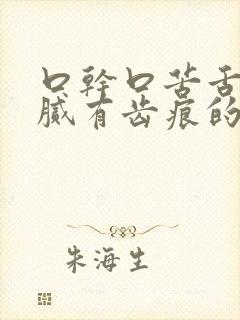 口幹口苦舌
膩有齿痕的
朱海生